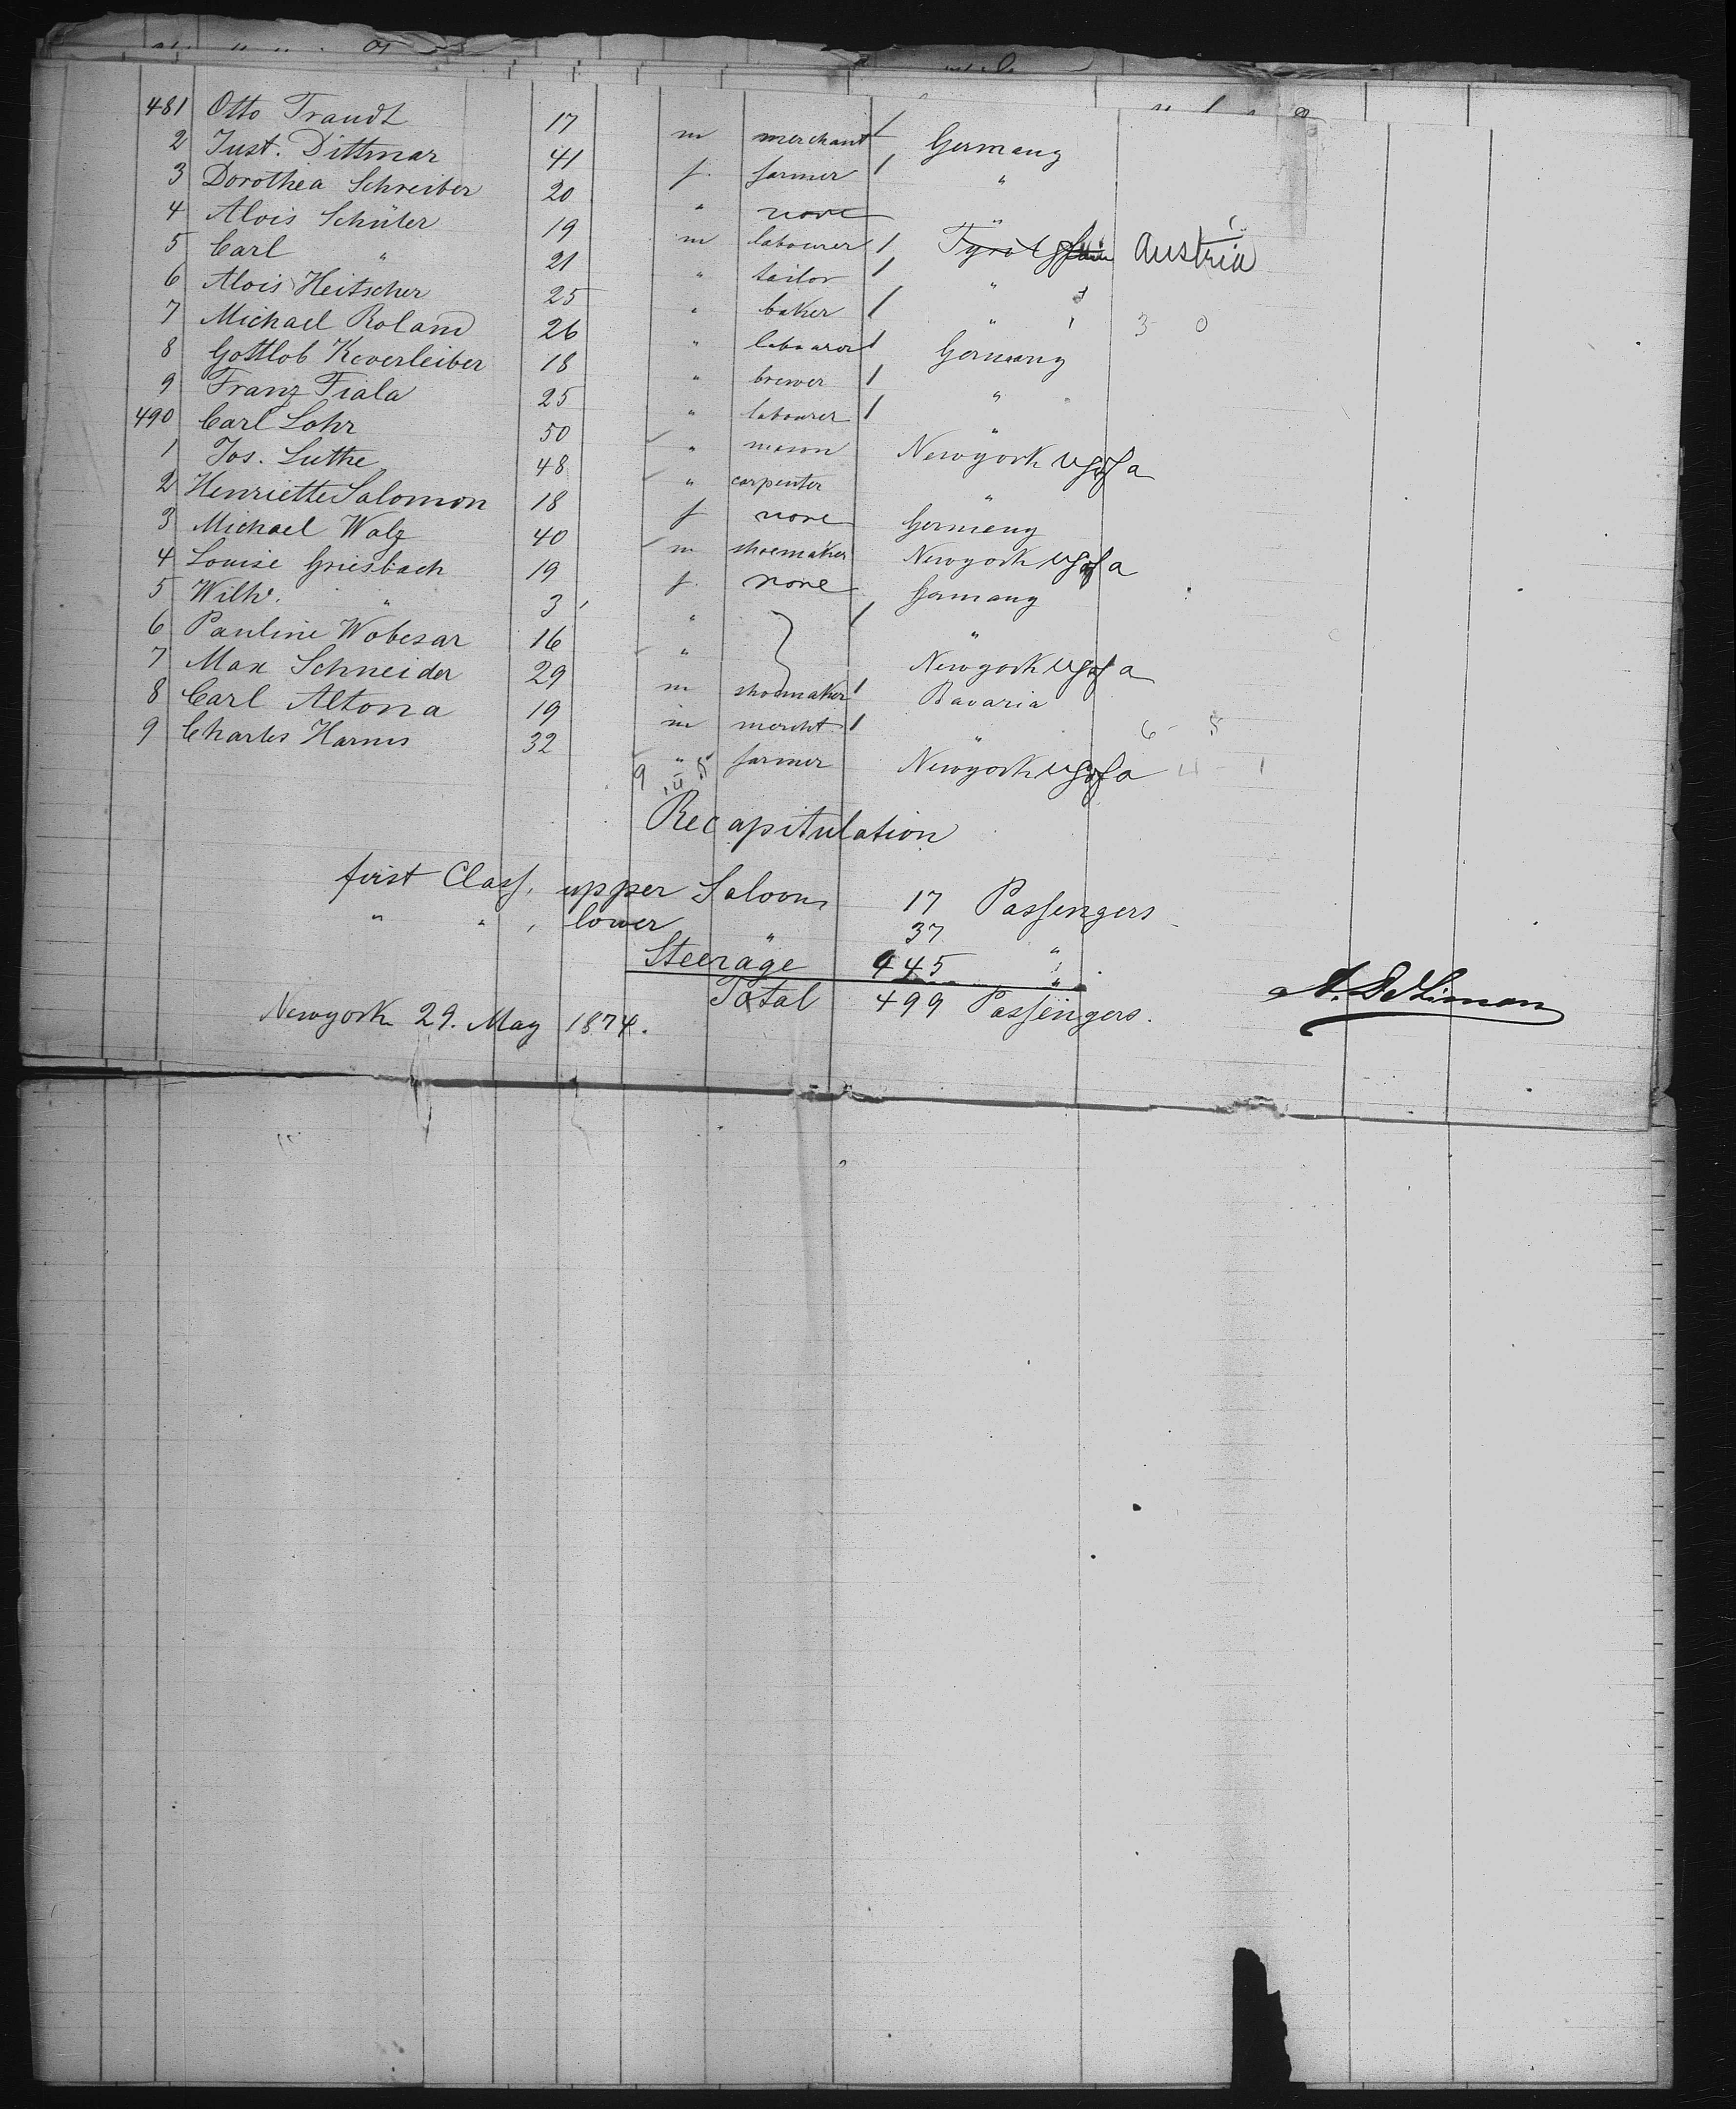 481 Otto Traudt 17 m merchant / Germany
2 Just. Dittmar 41 f. farmer / "
3 Dorothea Schreiber 20 " none "
4 Alois Schüler 19 m labourer / Tyrol Austria
5 Carl " 21 " tailor / "
6 Alois Heitscher 25 " baker / " 3 0
7 Michael Roland 26 " labourer / Germany
8 Gottlob Keverleiber 18 " brewer / "
9 Franz Fiala 25 " labourer / "
490 Carl Lohr 50 " mason Newyork U S of a
1 Jos. Luthe 48 " carpenter "
2 Henriette Salomon 18 f none Germany
3 Michael Walz 40 m shoemaker Newyork U S of a
4 Louise Griesbach 19 f. none Germany
5 Wilh. " 3 " / "
6 Pauline Wobesar 16 " Newyork U S of a
7 Max Schneider 29 m shoemaker / Bavaria
8 Carl Altona 19 m mercht. / " 6 - 5
9 Charles Harms 32 " farmer Newyork U S of a 4 - 1
Recapitulation
first Class, upper Saloon 17 Passengers
" " , lower " 37 "
Steerage 445 "
Total 499 Passengers.
Newyork 29. May 1874.